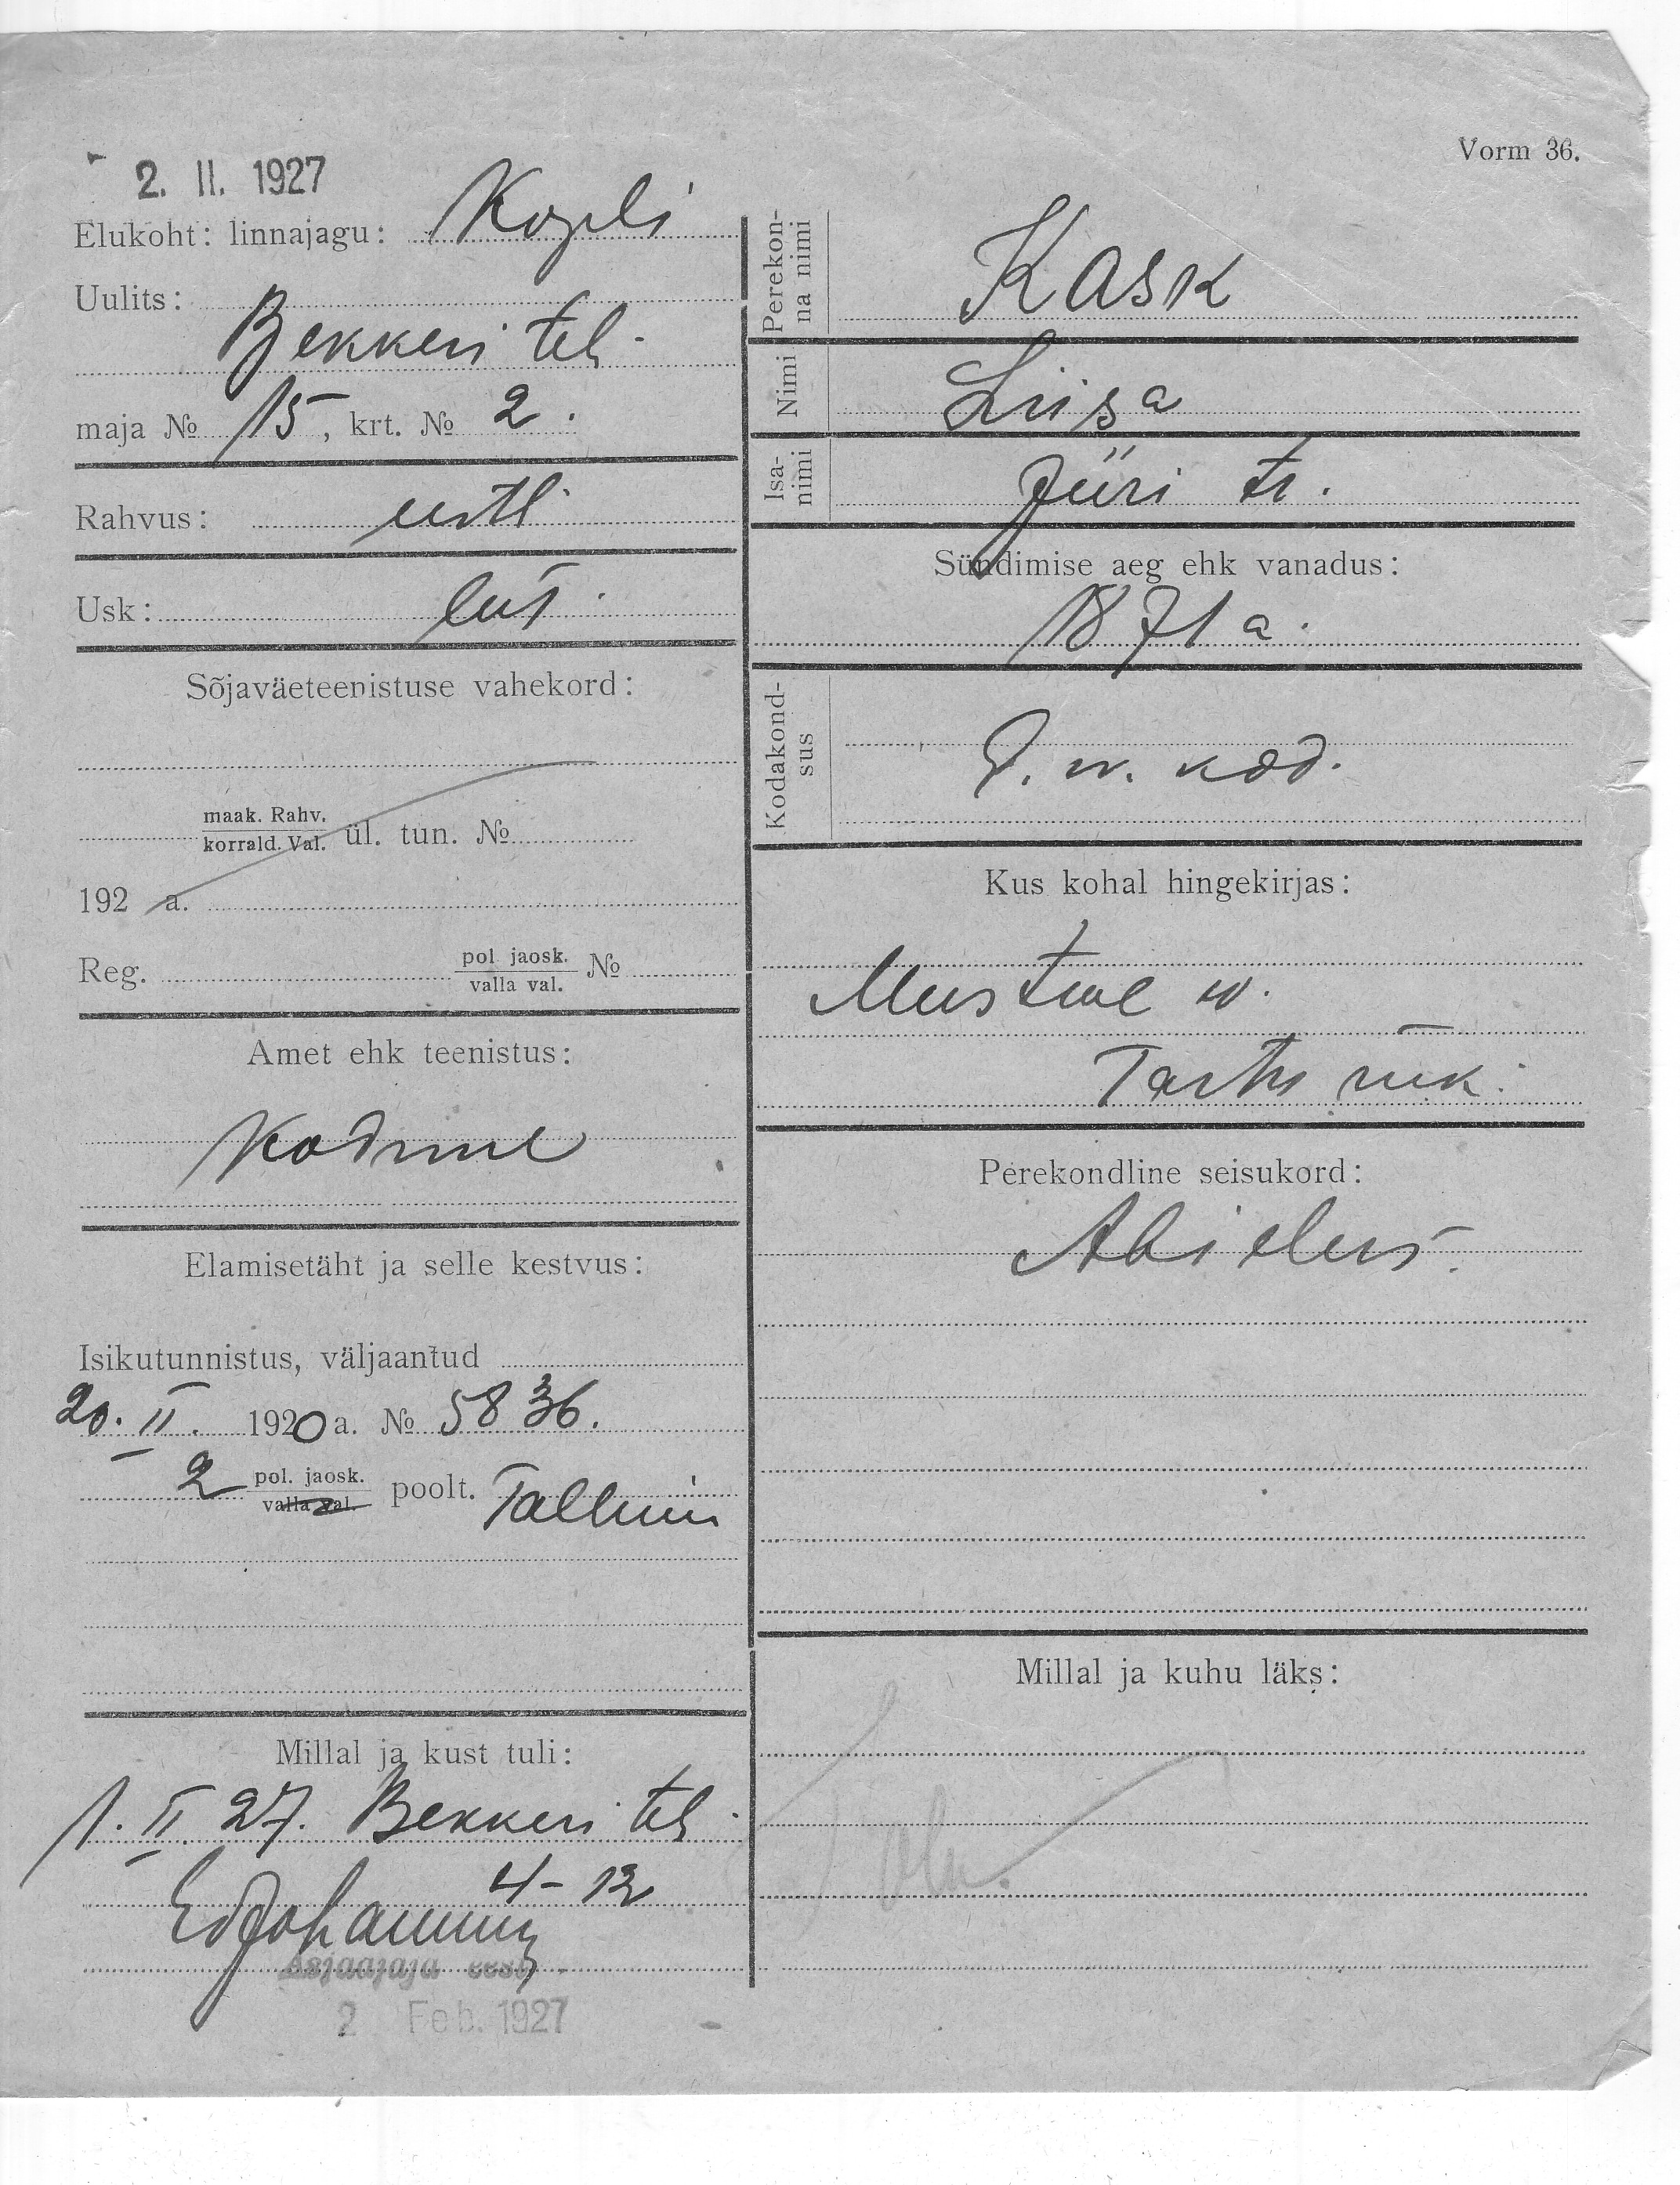 Vorm 36.
2. II. 1927
Elukoht: linnajagu: Kopli
Uulits:
Bekkeri teh.
maja № 15, krt. № 2.
Rahvus: eestl.
Usk: lut.
Sõjaväeteenistuse vahekord:
maak. Rahv.
korrald. Val. ül. tun. №
192 a.
Reg. pol jaosk. №
valla val.
Amet ehk teenistus:
Kodune
Elamisetäht ja selle kestvus:
Isikutunnistus, väljaantud
20. II. 1920 a. № 5836.
2 pol. jaosk. poolt. Tallinn
valla val.
Millal ja kust tuli:
1. II 27. Bekkeri teh.
4-12
Asjaajaja eest
2 Feb. 1927
Perekon-
na nimi
Kask
Nimi
Liisa
Isa-
nimi
Jüri tr.
Sündimise aeg ehk vanadus:
1871 a.
Kodakond-
sus
E. w. kod.
Kus kohal hingekirjas:
Mustwee w.
Tartu
Perekondline seisukord:
Abielus.
Millal ja kuhu läks: